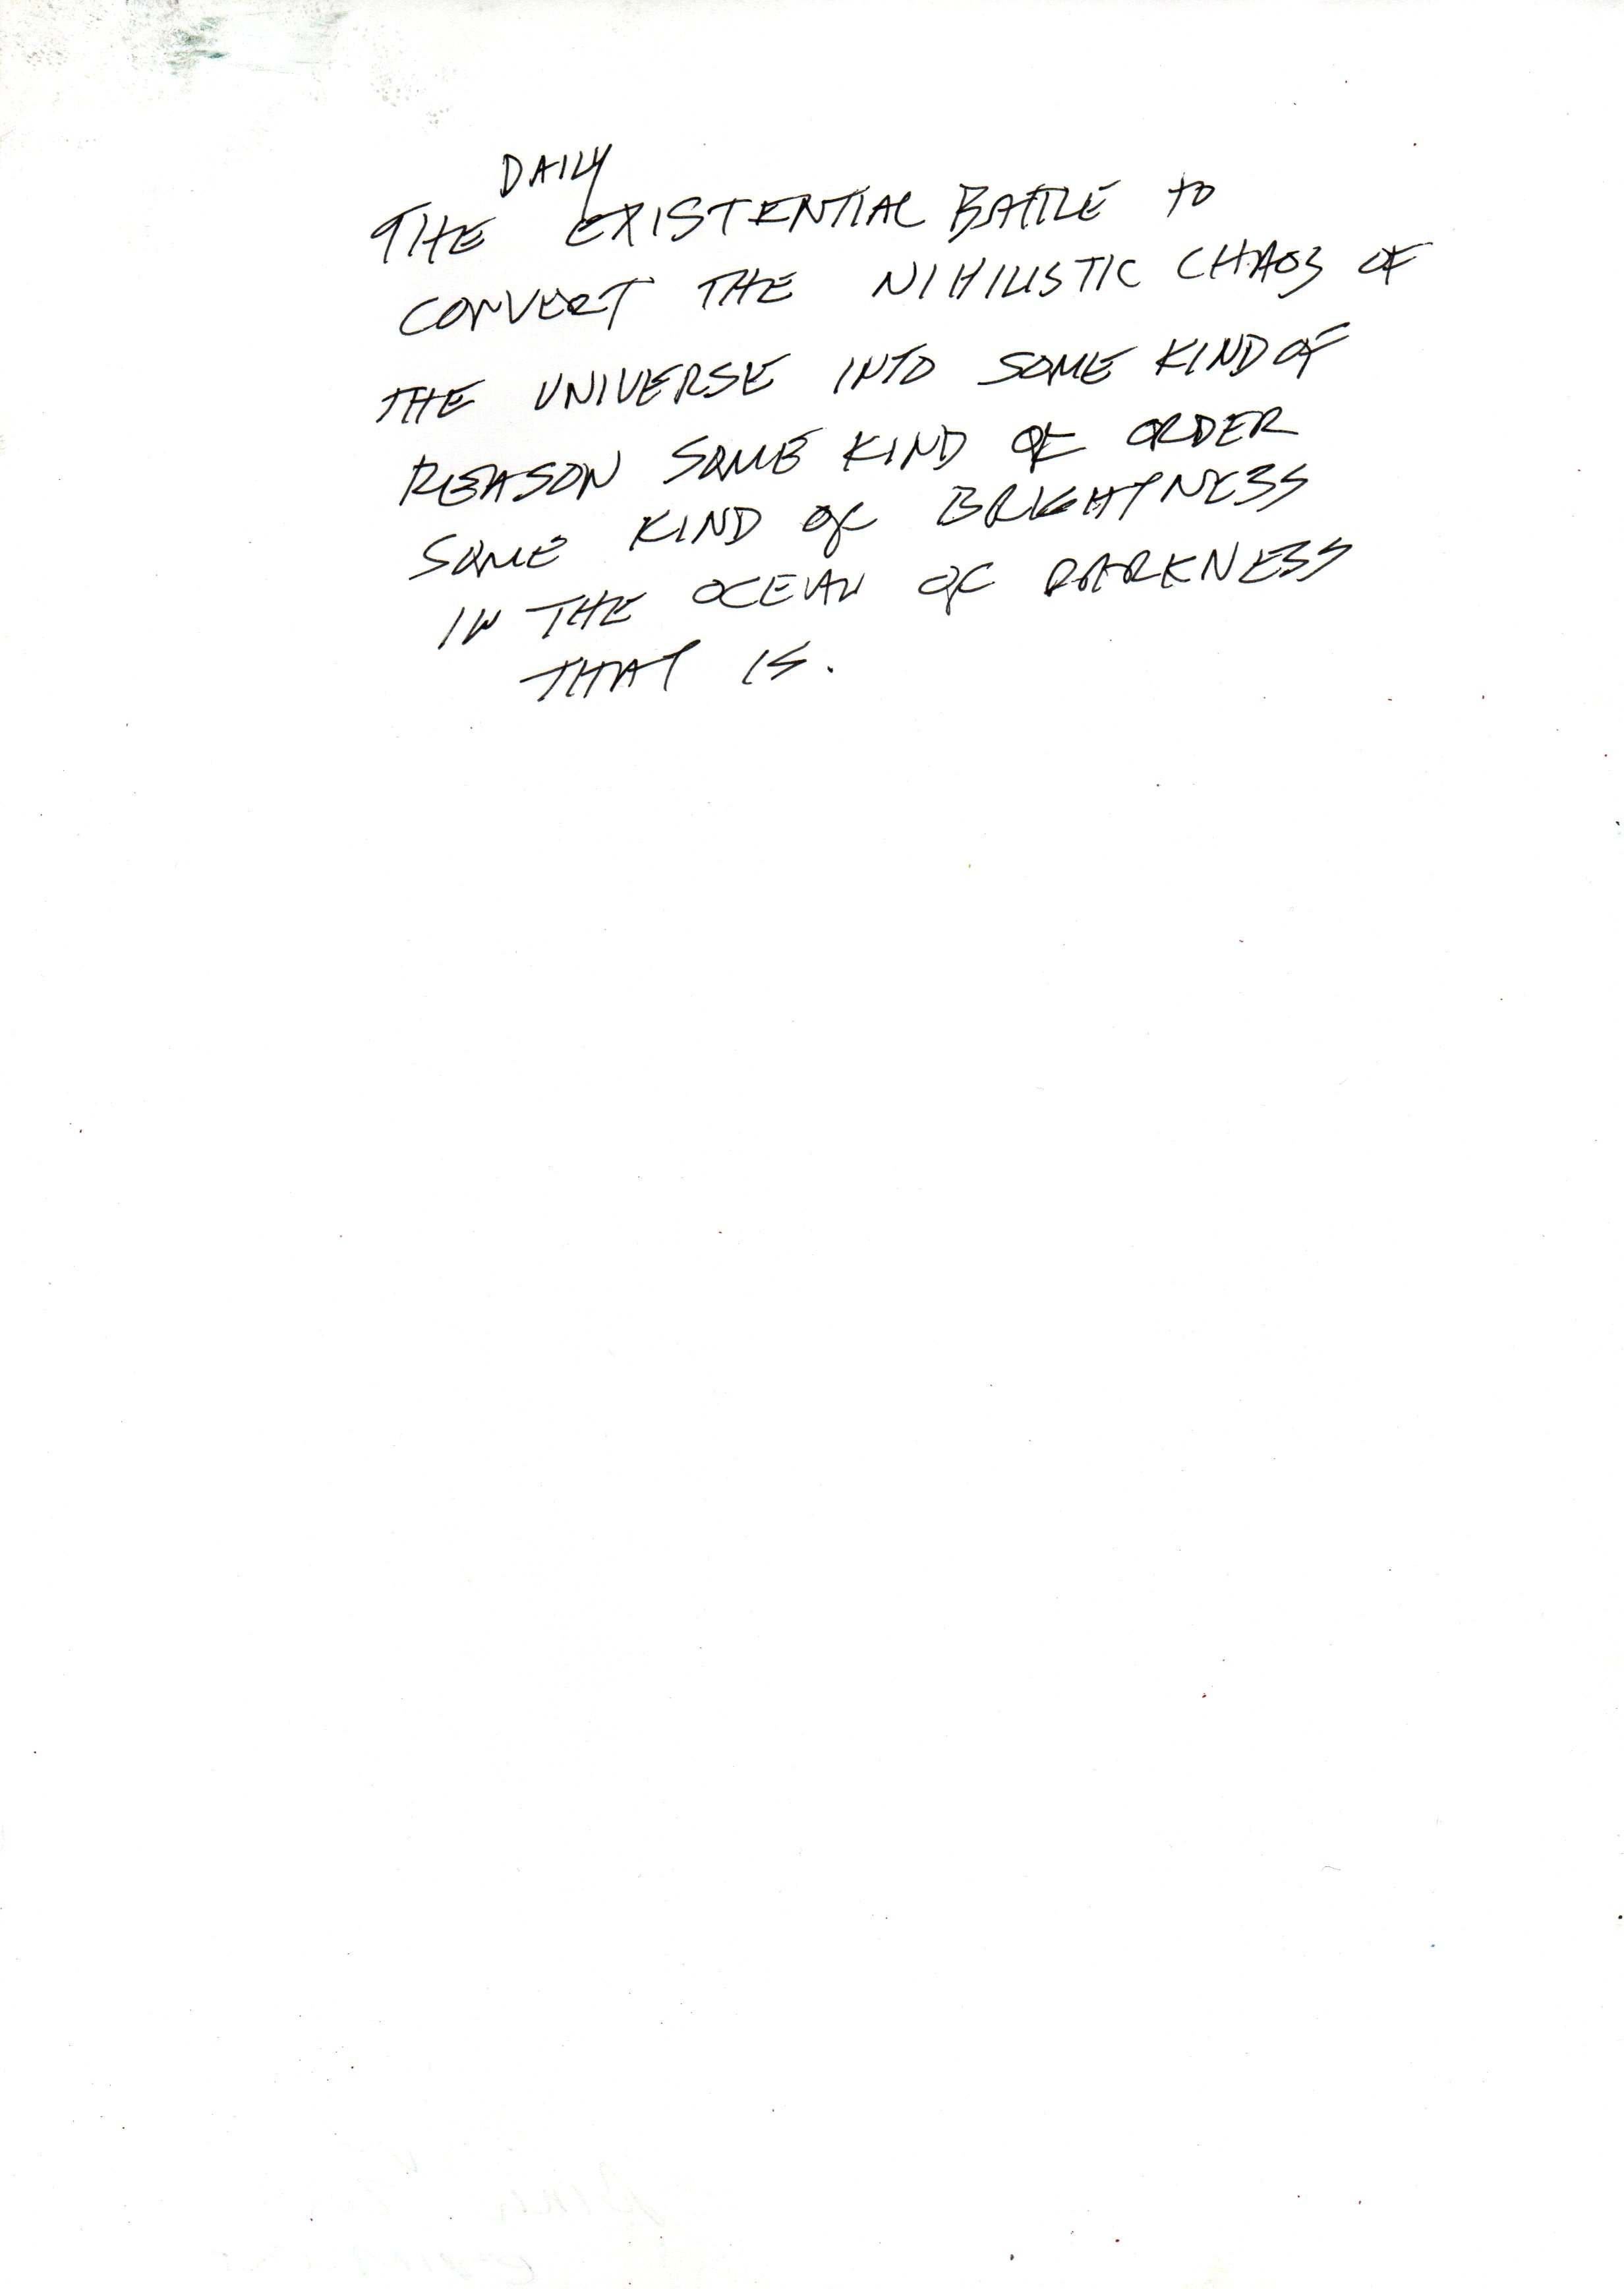 DAILY
THE EXISTENTIAL BATTLE to
CONVERT THE NIHILISTIC CHAOS OF
THE UNIVERSE INTO SOME KIND OF
REASON SOME KIND OF ORDER
SOME KIND OF BRIGHTNESS
IN THE OCEAN OF DARKNESS
THAT IS.